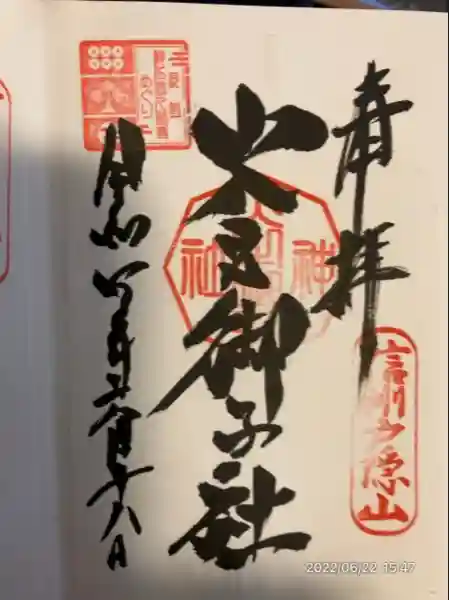 奉拝
信州戸隠山
火之御子社
令和四年六月十八日
めぐり
2022/06/22 15:47